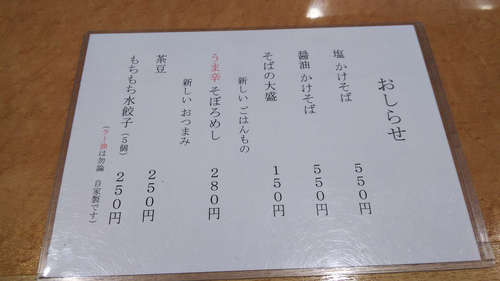 おしらせ
塩 かけそば 550円
醤油 かけそば 550円
そばの大盛 150円
新しい ごはんもの
うま辛 そぼろめし 280円
新しい おつまみ
茶豆 250円
もちもち水餃子(5個) 250円
(ラー油は勿論 自家製です)